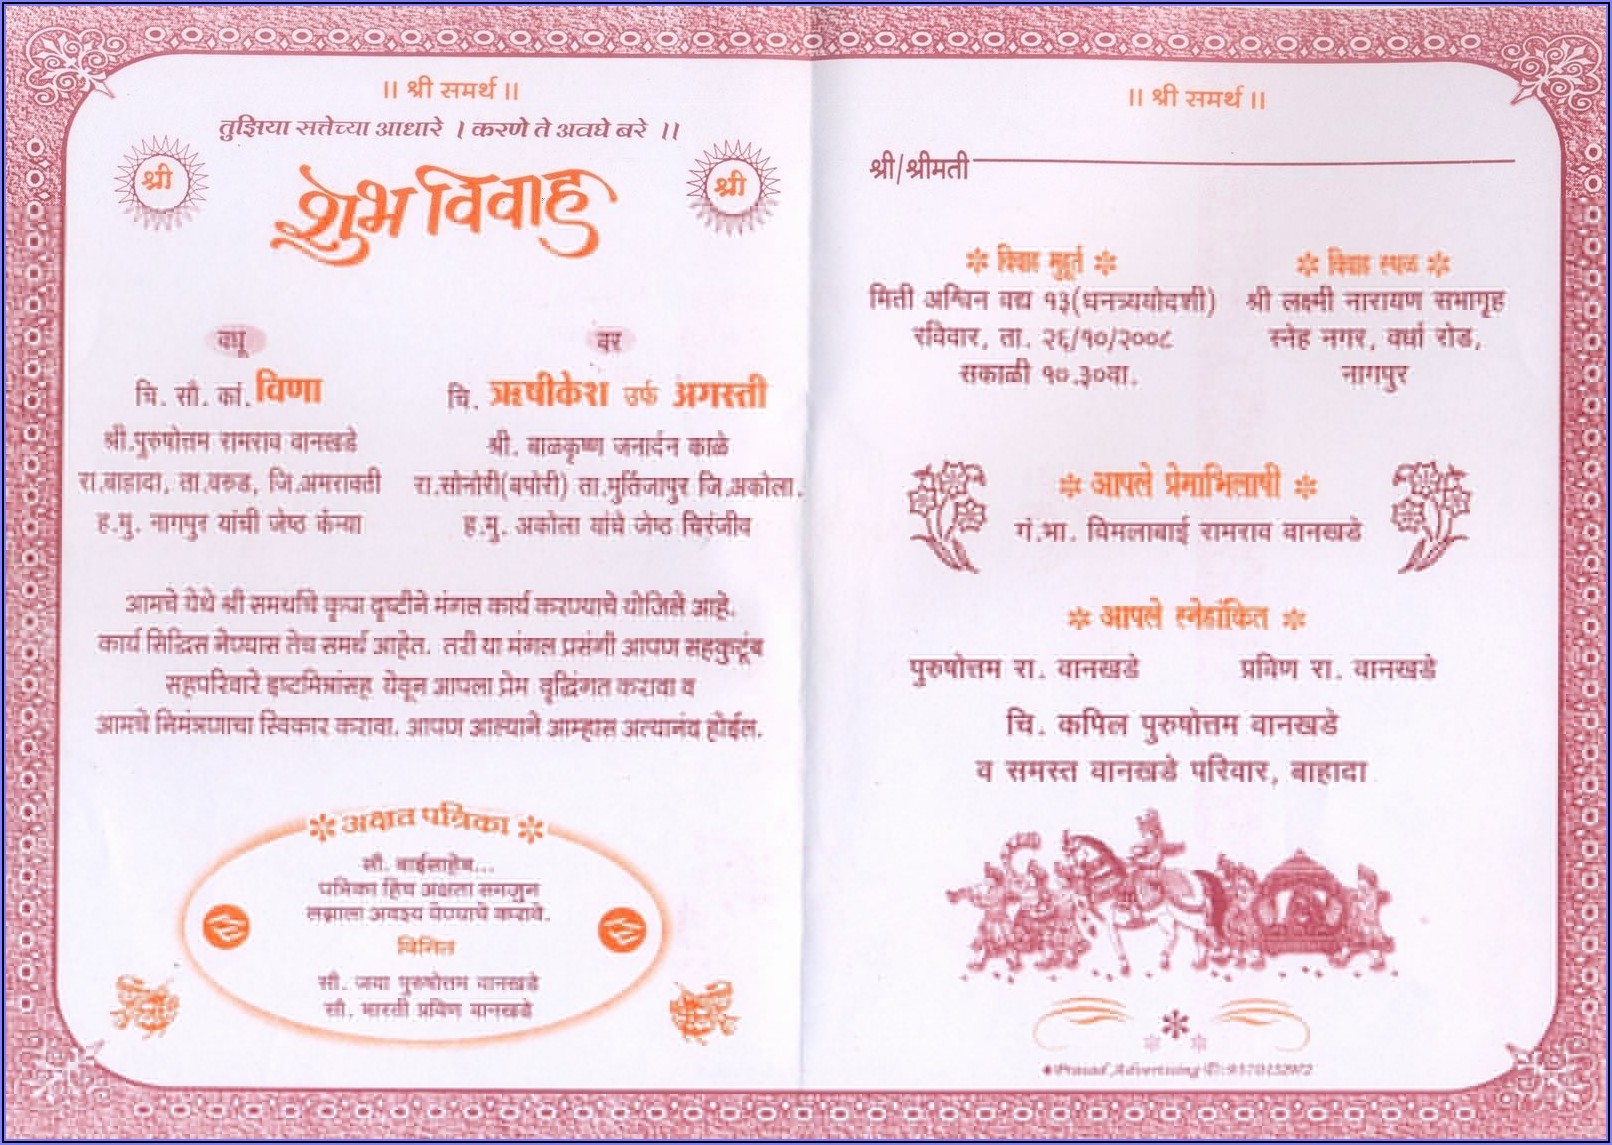 ।। श्री समर्थ ।।
तुझिया सत्तेच्या आधारे । करणे ते अवघे बरे ।।
श्री
शुभ विवाह
श्री
वधू
वर
चि. सौ. कां. विणा
चि. ऋषीकेश उर्फ अगस्ती
श्री.पुरुषोत्तम रामराव वानखडे
श्री. बाळकृष्ण जनार्दन काळे
रा.बाहादा, ता.वरुड, जि.अमरावती
रा.सोनोरी(बपोरी) ता.मुर्तिजापुर जि.अकोला.
ह.मु. नागपुर यांची जेष्ठ कन्या
ह.मु. अकोला यांचे जेष्ठ चिरंजीव
आमचे येथे श्री समर्थांचे कृपा दृष्टीने मंगल कार्य करण्याचे योजिले आहे.
कार्य सिद्धिस नेण्यास तेच समर्थ आहेत. तरी या मंगल प्रसंगी आपण सहकुटूंब
सहपरिवारे इष्टमित्रांसह येवून आपला प्रेम वृद्धिंगत करावा व
आमचे निमंत्रणाचा स्विकार करावा. आपण आल्याने आम्हास अत्यानंद होईल.
अक्षत पत्रिका
सौ. बाईसाहेब...
पत्रिका हिच अक्षता समजुन
लग्नाला अवश्य येण्याचे करावे.
विनित
सौ. जया पुरुषोत्तम वानखडे
सौ. भारती प्रविण वानखडे
।। श्री समर्थ ।।
श्री/श्रीमती
विवाह मुहूर्त
विवाह स्थळ
मिती अश्विन वद्य १३(धनत्र्ययोदशी)
श्री लक्ष्मी नारायण सभागृह
रविवार, ता. २६/१०/२००८
स्नेह नगर, वर्धा रोड,
सकाळी १०.३०वा.
नागपुर
आपले प्रेमाभिलाषी
गं.भा. विमलाबाई रामराव वानखडे
आपले स्नेहांकित
पुरुषोत्तम रा. वानखडे
प्रविण रा. वानखडे
चि. कपिल पुरुषोत्तम वानखडे
व समस्त वानखडे परिवार, बाहादा
Prasad Advertising